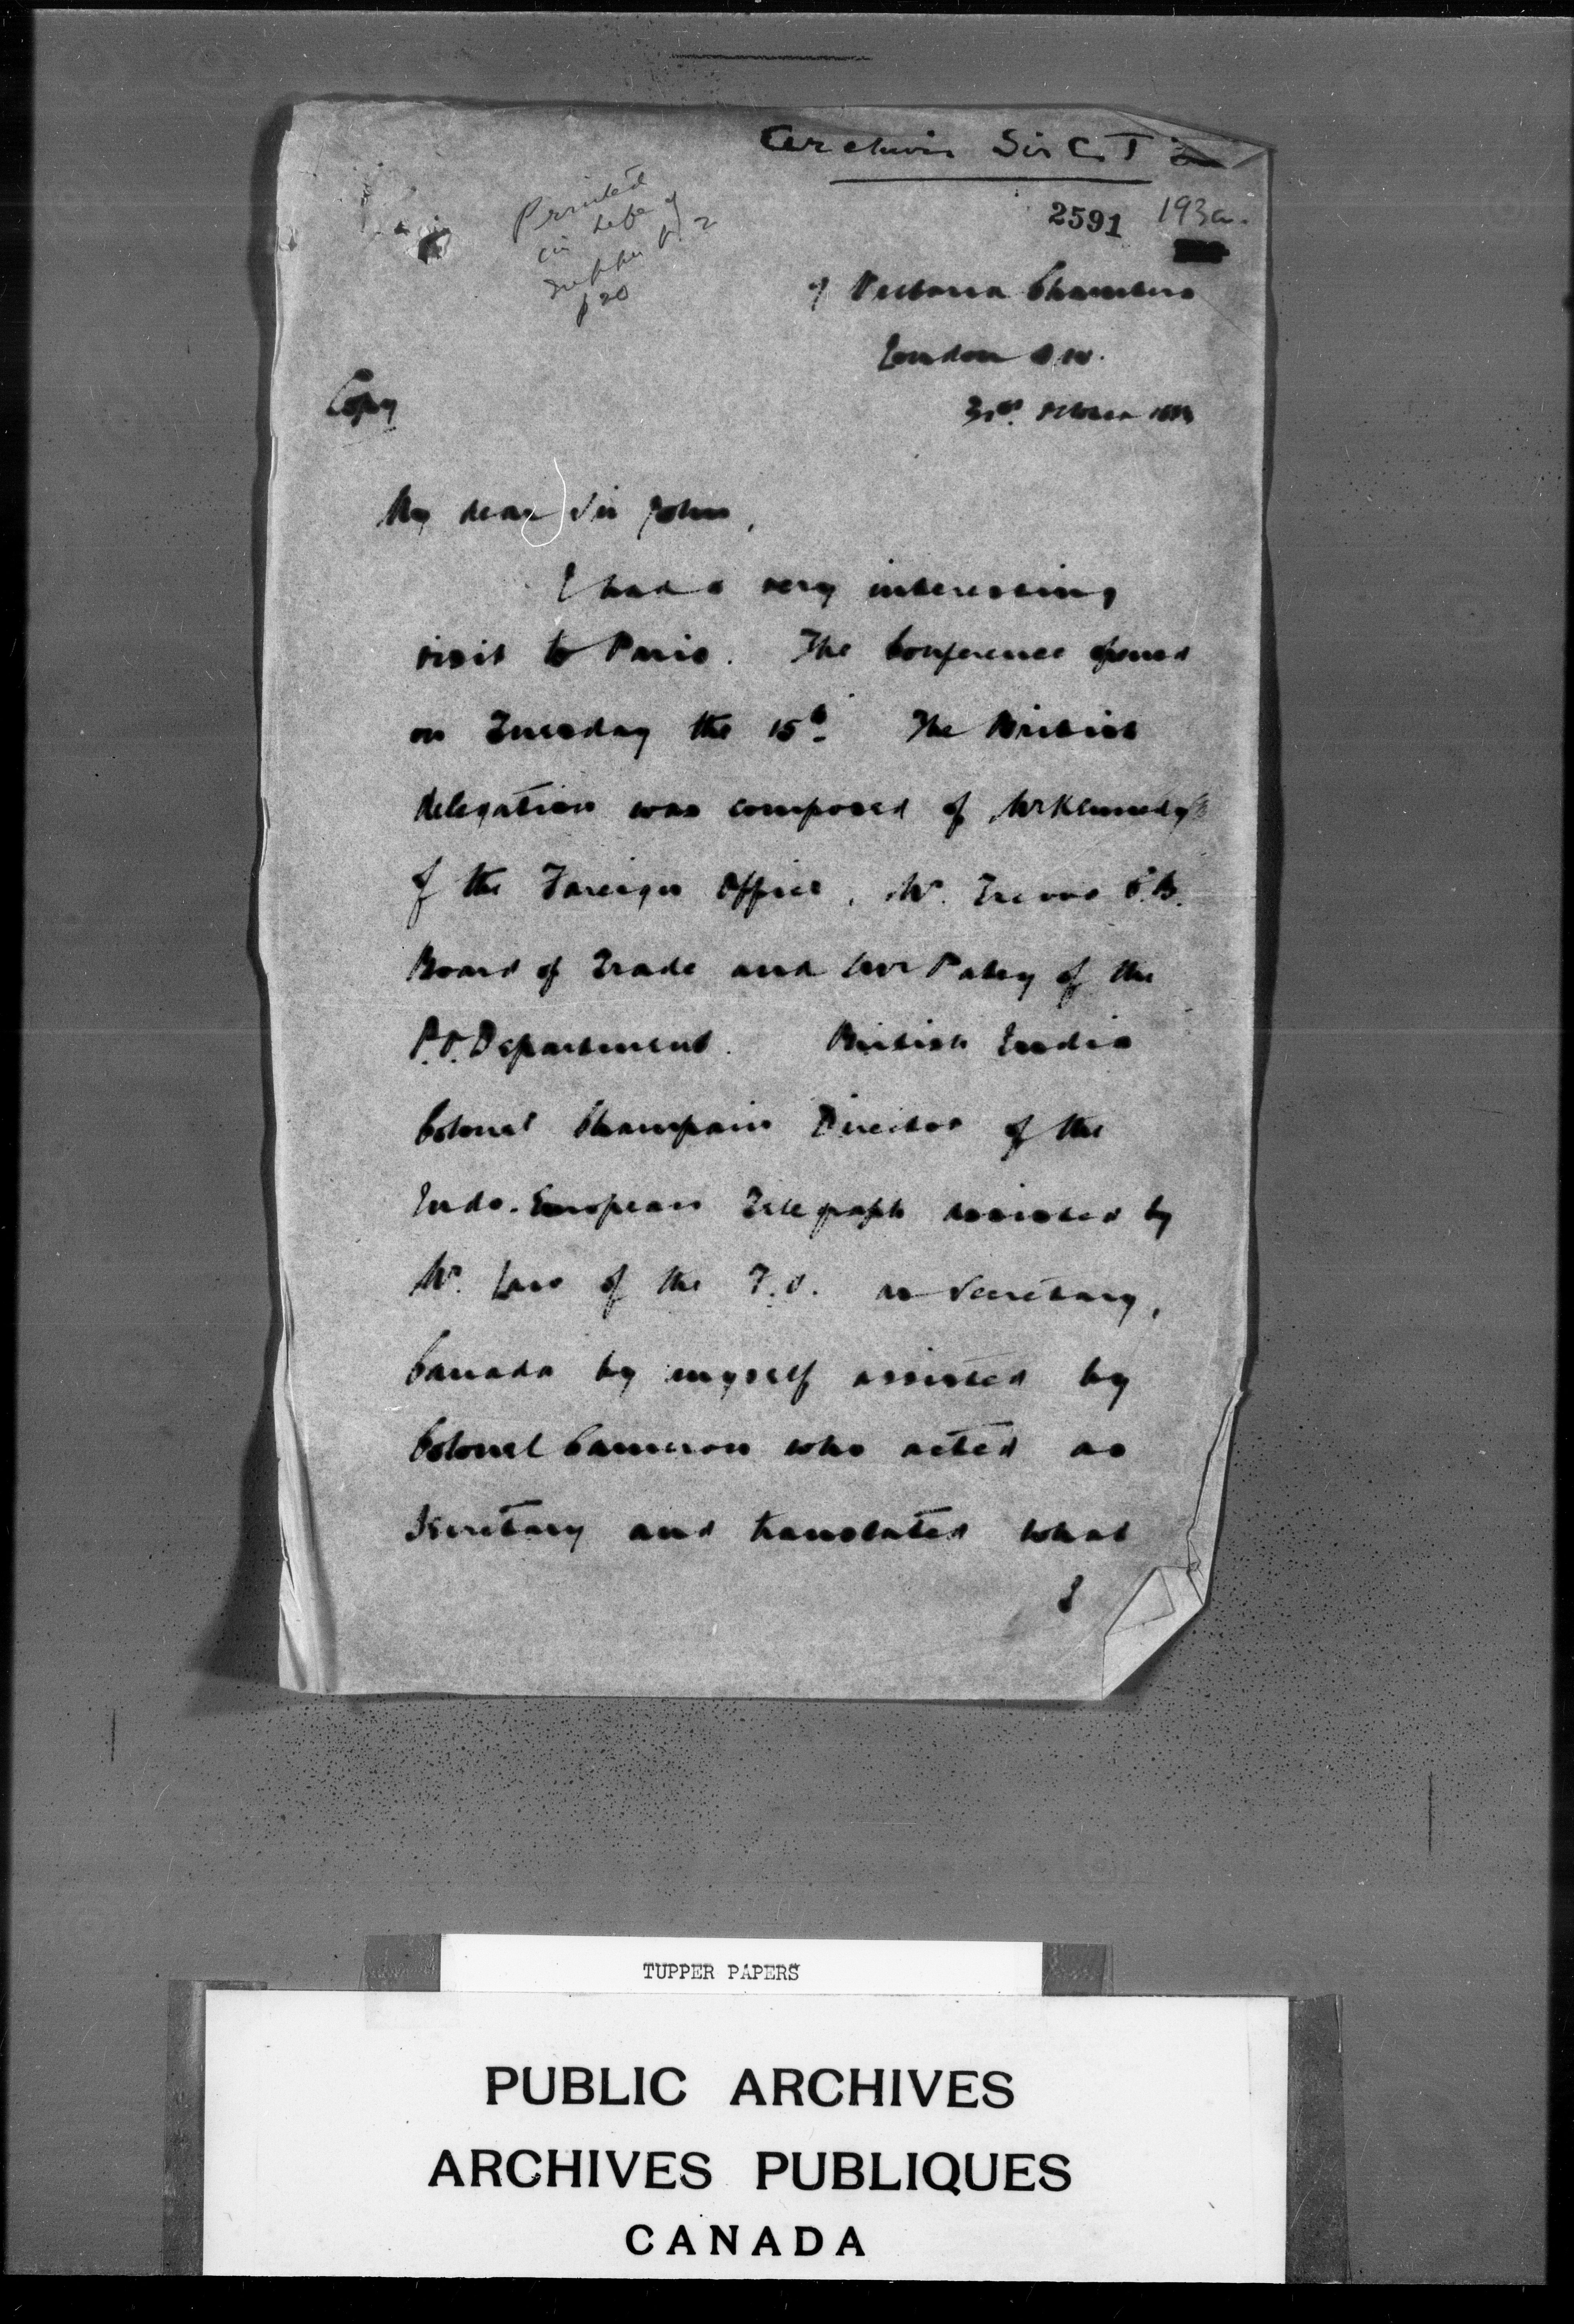 Archives Sir C. T
2591 193a.
Printed
in Life of
Tupper v. 2
p 20
9 Victoria Chambers
London S.W.
Copy
31st October 1883
My dear Sir John,
I had a very interesting
visit to Paris. The Conference opened
on Tuesday the 15th. The British
delegation was composed of Mr Kennedy
of the Foreign Office, Mr. Trevor C.B.
Board of Trade and Mr Patey of the
P.O. Department. British India
Colonel Champain Director of the
Indo-European Telegraph assisted by
Mr. Law of the F.O. as Secretary,
Canada by myself assisted by
Colonel Cameron who acted as
Secretary and translated what
I
TUPPER PAPERS
PUBLIC ARCHIVES
ARCHIVES PUBLIQUES
CANADA